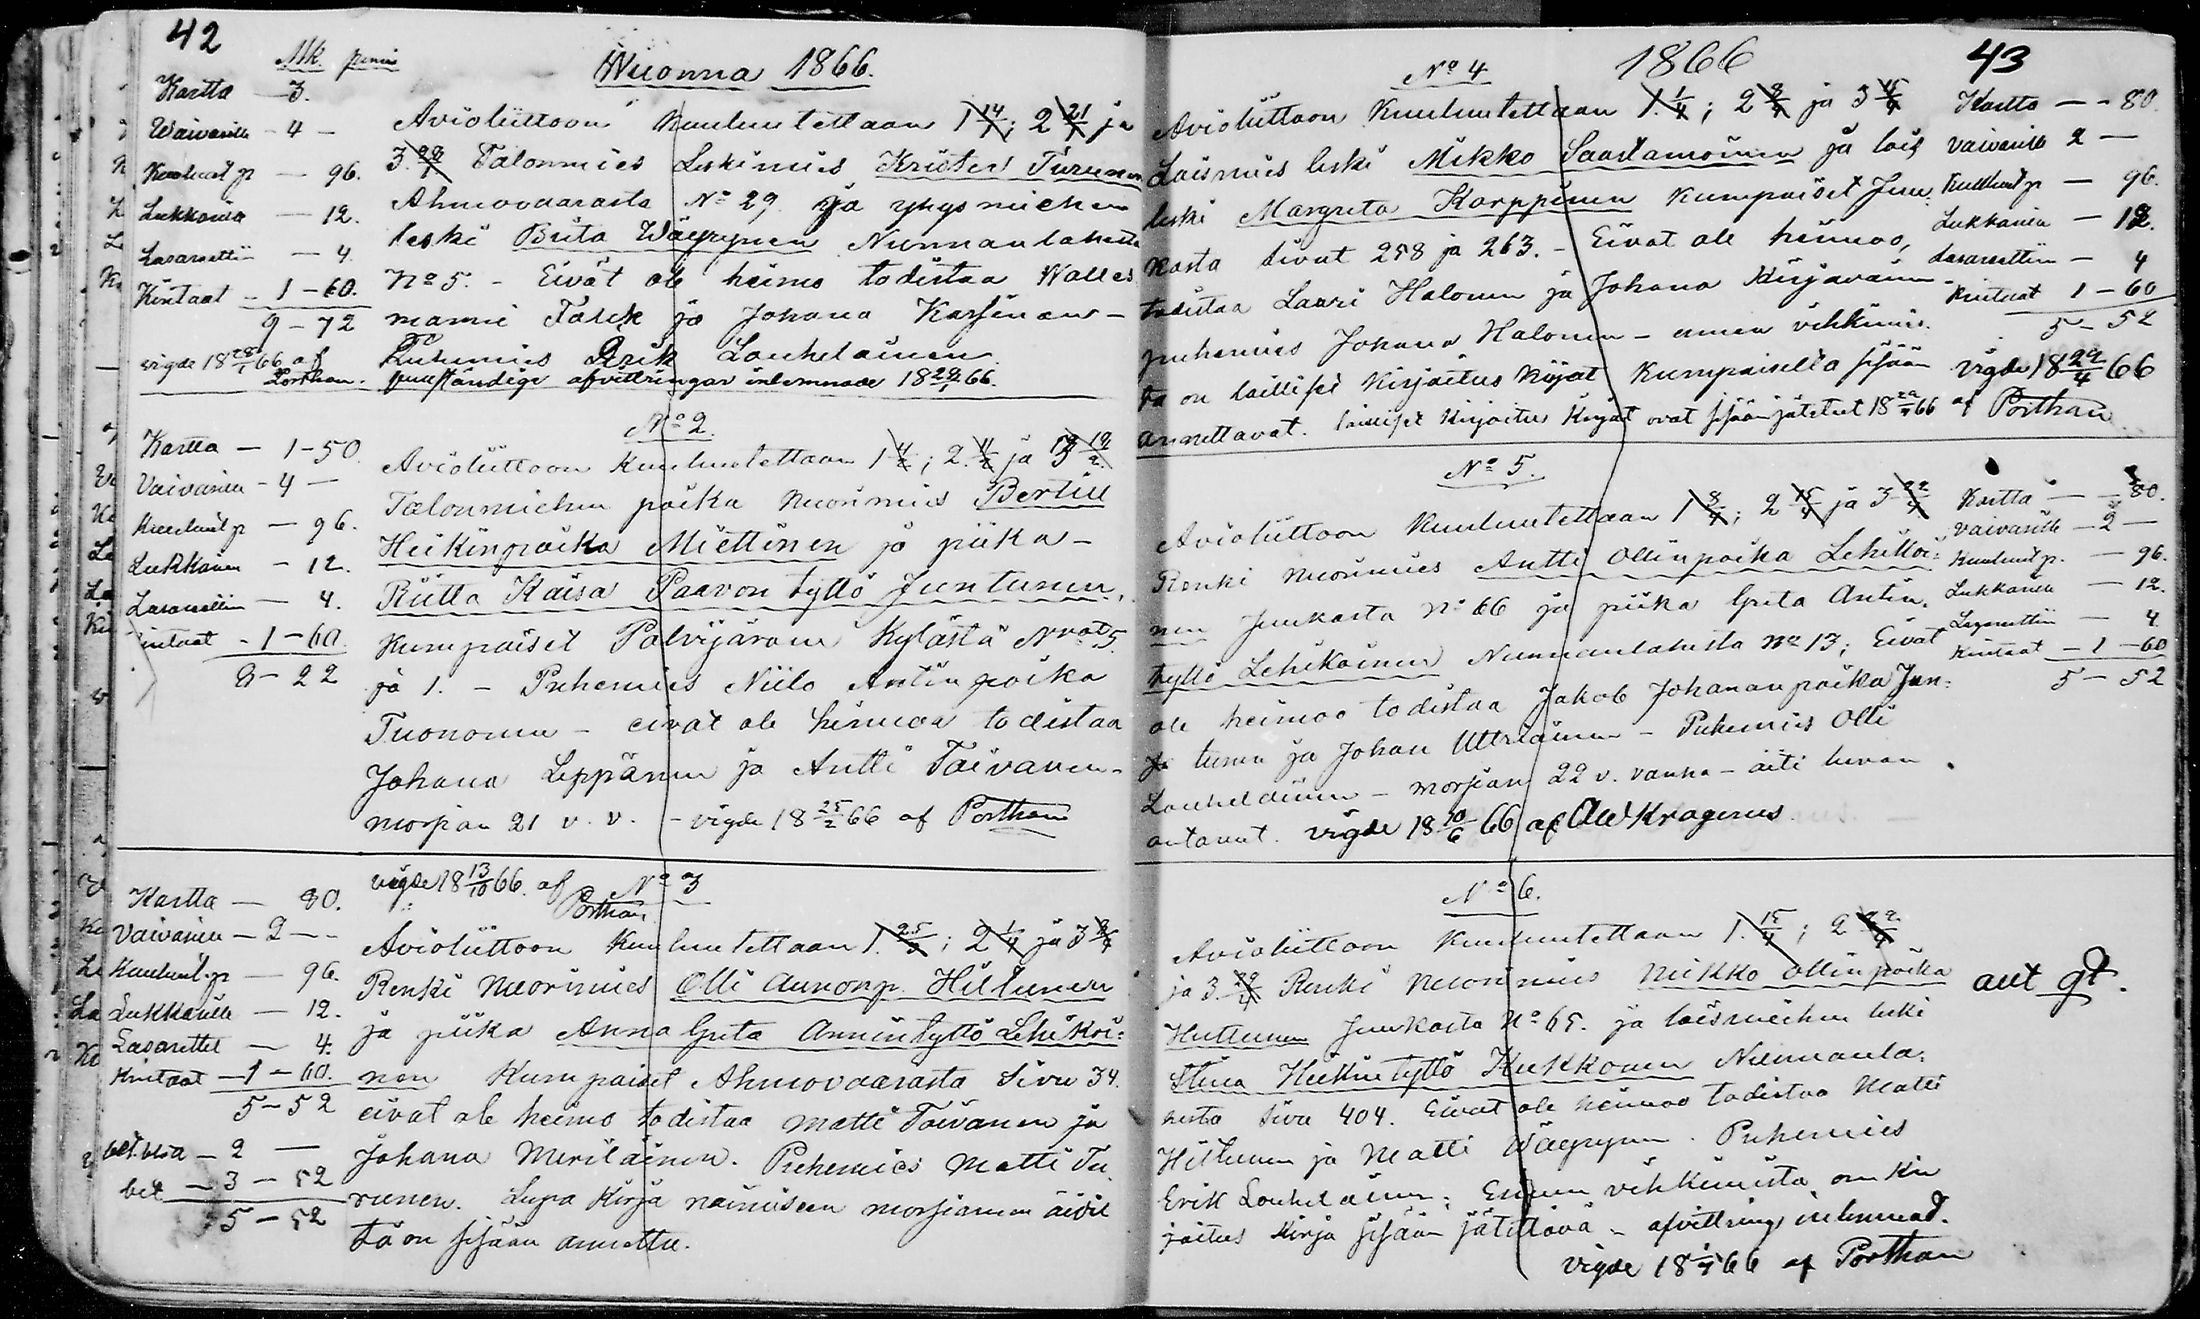 42
Mk. penni
Wuonna 1866.
Kartta — 3.
Waivasille - 4 -
Kuulut. p — 96.
Lukkarille — 12.
Lasarettiin — 4.
Kintaat - 1 - 60.
9 - 72
vigde 18 28/1 66 af
Porthan.
Avioliittoon Kuulutettaan 1 14/1; 2 21/1 ja
3. 28/1 Talonmies Leskimies Krister Turunen
Ahmovaarasta No 29. ja yhysmiehen
leski Brita Wäyrynen Nunnanlahesta
No 5. - Eivät ole heimo todistaa Walles
manni Falck ja Johana Karsinen -
Puhemies Erik Louhelainen
fullständige afvittringar inlemnade 18 28/1 66.
No 2.
Kartta — 1 - 50
Vaivasille - 4 —
Kuulut. p — 96.
Lukkarille - 12.
Lasarettiin — 4.
Kintaat - 1 - 60
8 - 22
Avioliittoon Kuulutettaan 1 4/2; 2. 11/2 ja 3 18/2
Talonmiehen poika nuorimies Bertill
Heikinpoika Miettinen ja piika -
Riitta Kaisa Paavon tyttö Juntunen,
Kumpaiset Polvijärven Kylästä Nrot 5
ja 1. - Puhemies Niilo Antinpoika
Tuononen - eivät ole heimoa todistaa
Johana Leppänen ja Antti Toivanen -
morsian 21 v. v. - vigde 18 25/2 66 af Porthan
vigde 18 13/10 66. af
Porthan
No 3
Kartta — 80.
Vaivasille — 2 - -
Kuulut. p — 96.
Lukkarille — 12.
Lasarettet — 4.
Kintaat — 1 - 60.
5 - 52
— 2 —
bet — 3 - 52
5 - 52
Avioliittoon Kuulutettaan 1. 25/3; 2 1/4 ja 3 2/4
Renki Nuorimies Olli Aunonp. Hiltunen
ja piika Anna Greta Annintyttö Lehikoi:
nen Kumpaiset Ahmovaarasta Sivu 34.
eivat ole heimo todistaa Matti Toivanen ja
Johana Meriläinen. Puhemies Matti Tu
runen. Lupa Kirja naimiseen morsiamen äidil
tä on sisään annettu.
No 4
1866
43
Avioliittoon Kuulutettaan 1. 1/4; 2 2/4 ja 3
Loismies leski Mikko Saastamoinen ja lois
leski Margreta Karppinen Kumpaiset Juu
kasta sivut 258 ja 263. - Eivat ole heimoo,
todistaa Lauri Halonen ja Johana Kirjavainen -
puhemies Johana Halonen - ennen vihkimis
tä on lailliset Kirjoitus Kirjat Kumpaiselta sisään
annettavat. lailliset Kirjoitus Kirjat ovat sisään jätetut 18 29/4 66
Kartta — - 80.
Vaivasille 2 —
Kuulut p — 96.
Lukkarille — 12.
Lasarettiin — 4
Kintaat 1 - 60
5 - 52
vigde 18 29/4 66
af Porthan
No 5.
Avioliittoon Kuulutettaan 1 8/4; 2 15/4 ja 3 22/4
Renki nuorimies Antti Ollinpoika Lehikoi:
nen Juukasta No 66 ja piika Greta Antin,
tyttö Lehikoinen Nunnanlahesta No 13; Eivat
ole heimoo todistaa Jakob Johananpoika Jun:
tunen ja Johan Uttriainen - Puhemies Olli
Louhelainen - morsian 22 v. vanha - äiti luvan
antanut. vigde 18 10/6 66 af Krogerus
Kartta — - 80.
Vaivasille — 2 —
Kuulut p. — 96.
Lukkarille — 12.
Lasarettiin — 4
Kintaat — 1 - 60
5 - 52
No 6.
Avioliittoon Kuulutettaan 1. 15/4; 2 22/4
ja 3 29/4 Renki Nuorimies Mikko Ollinpoika
Huttunen Juukasta No 65. ja loismiehen leski
Stina Heikintyttö Kukkonen Nunnanla:
hesta Sivu 404. Eivat ole heimoo todistaa Matti
Hiltunen ja Matti Wäyrynen. Puhemies
Erik Louhelainen; Ennen vihkimista on Kir
joitus Kirja sisään jätettävä - afvittring inlemnad.
vigde 18 1/5 66 af Porthan